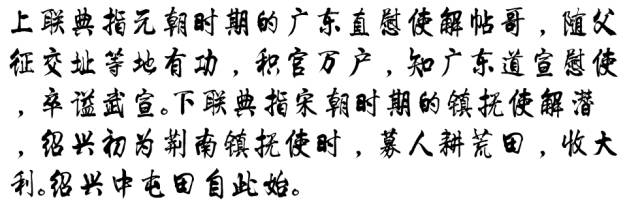 上联典指元朝时期的广东直慰使解帖哥，随父
征交址等地有功，积官万户，知广东道宣慰使
，卒谥武宣。下联典指宋朝时期的镇抚使解潜
，绍兴初为荆南镇抚使时，募人耕荒田，收大
利。绍兴中屯田自此始。